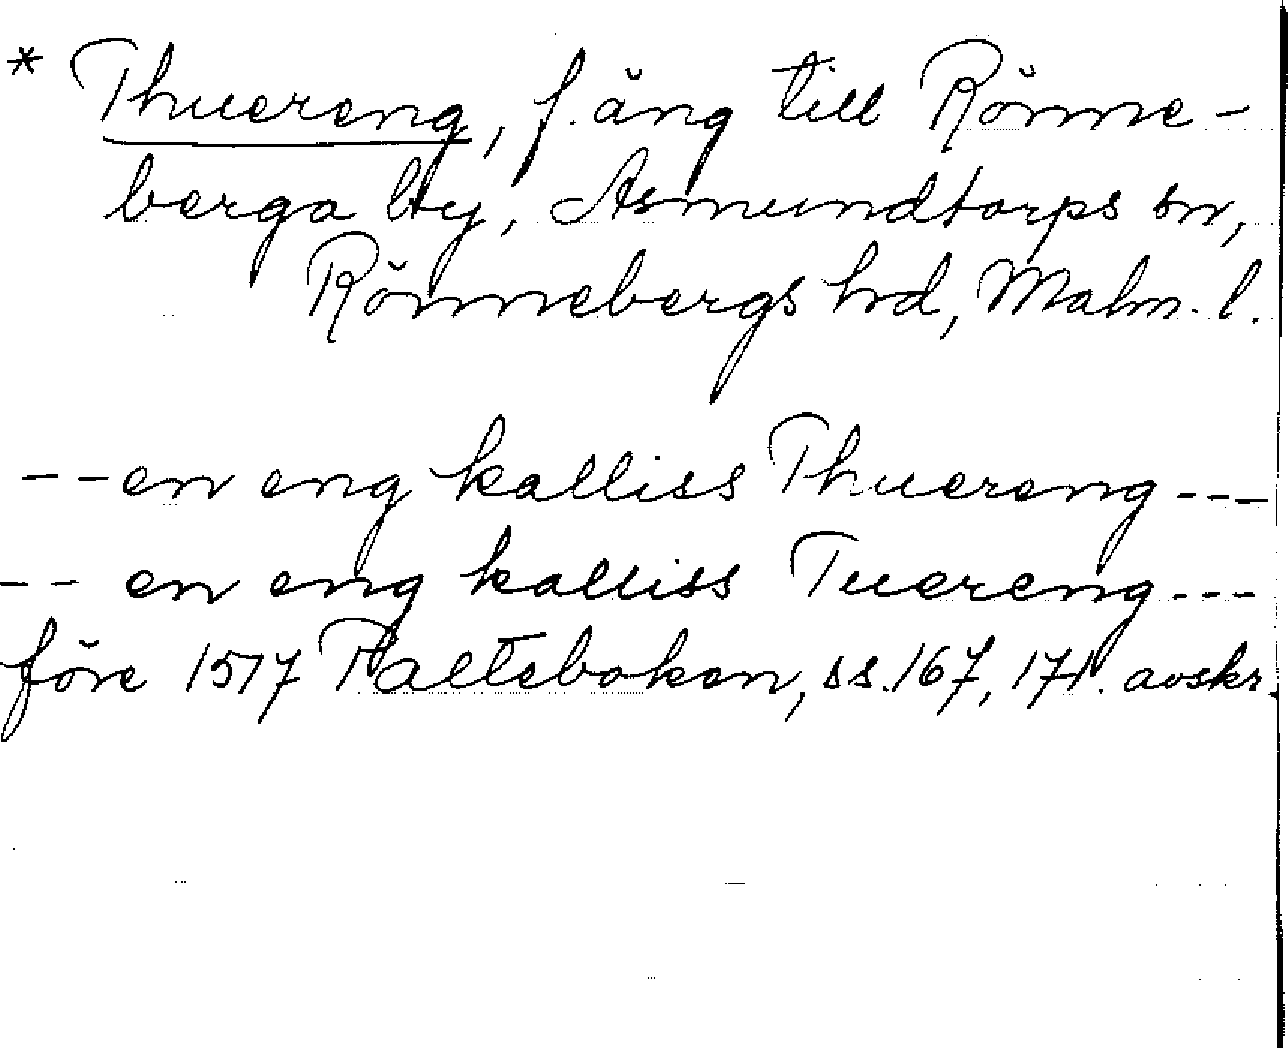 * Thuereng, f. äng till Rönne-
berga by, Asmundtorps sn,
Rönnebergs hd, Malm. l.
-- en eng kalliss Thuereng ---
-- en eng kalliss Tuereng ---
före 1517 Palteboken, ss. 167, 171. avskr.